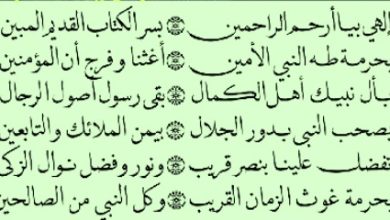 إلهي بيا أرحم الراحمين ۞ بسر الكتاب القديم المبين
بحرمة طه النبي الأمين ۞ أغثنا وفرج أن المؤمنين
بأل نبيك أهل الكمال ۞ بقى رسول أصول الرجال
بصحب النبى بدور الجلال ۞ بيمن الملائك والتابعين
تفضل علينا بنصر قريب ۞ ونور وفضل نوال الزكى
بحرمة غوث الزمان القريب ۞ وكل النبي من الصالحين